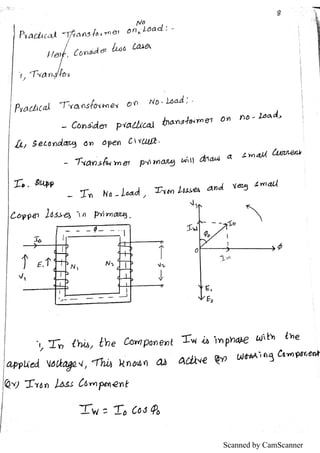 8
No
Practical Transformer on Load:-
Here, Consider two cases
i, Transfor
Practical Transformer on No-Load:-
- Consider practical transformer on no-load,
ie, Secondary on open Circuit.
- Transformer primary will draw a small Current
Io. Supp
- In No-Load, Iron Losses and very small
Copper losses in primary.
Io
ϕ
V1
E1
N1
N2
V2
V1
Iw
Io
ϕo
O
Im
ϕ
E1
E2
i, In this, the Component Iw is inphase with the
applied voltage V, This known as active on working Component
(or) Iron Loss Component
Iw = Io Cos ϕo
Scanned by CamScanner